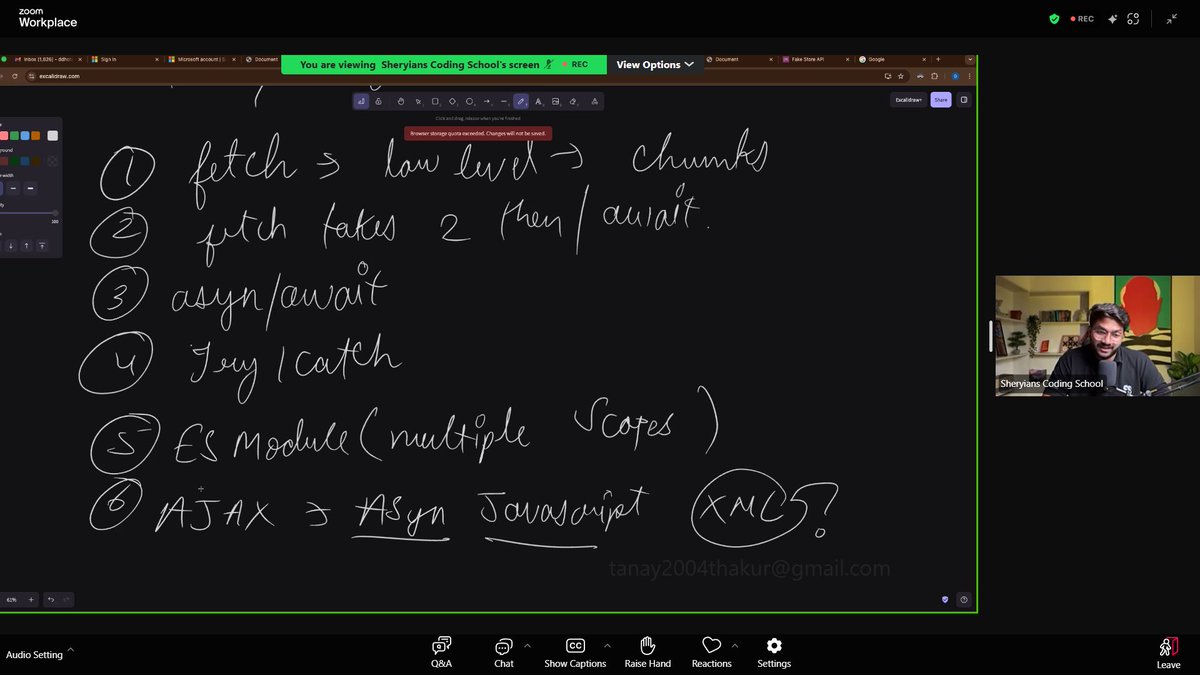 zoom
Workplace
REC
Inbox (1,626) - ddhere
Sign in
Microsoft account | 
Document
You are viewing Sheryians Coding School's screen
REC
View Options
Document
Fake Store API
Google
excalidraw.com
Excalidraw+
Share
Click and drag, release when you're finished
Browser storage quota exceeded. Changes will not be saved.
100
① fetch → low level → chunks
② fetch takes 2 then/await.
③ asyn/await
④ Try/catch
⑤ ES Module (multiple Scopes)
⑥ AJAX → Asyn Javascript XML ?
tanay2004thakur@gmail.com
61%
Sheryians Coding School
Audio Setting
Q&A
Chat
CC
Show Captions
Raise Hand
Reactions
Settings
Leave